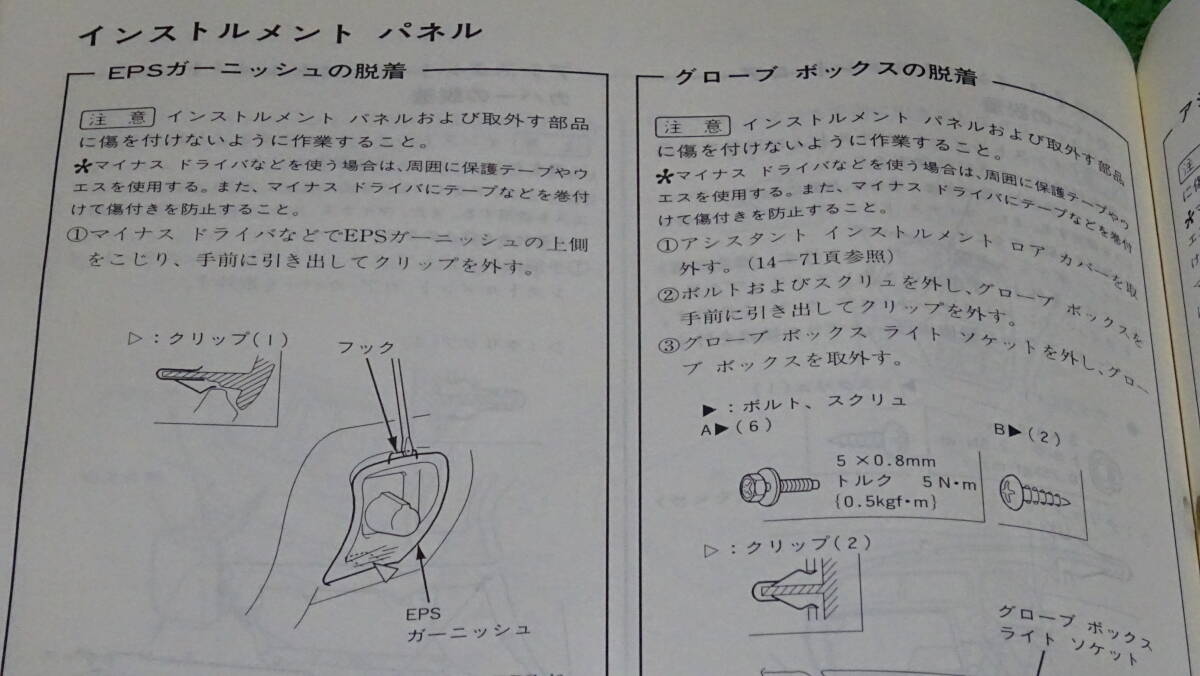 インストルメント パネル
EPSガーニッシュの脱着
注 意 インストルメント パネルおよび取外す部品
に傷を付けないように作業すること。
*マイナス ドライバなどを使う場合は、周囲に保護テープやウ
エスを使用する。また、マイナス ドライバにテープなどを巻付
けて傷付きを防止すること。
①マイナス ドライバなどでEPSガーニッシュの上側
をこじり、手前に引き出してクリップを外す。
▷：クリップ(1)
フック
EPS
ガーニッシュ
グローブ ボックスの脱着
注 意 インストルメント パネルおよび取外す部品
に傷を付けないように作業すること。
*マイナス ドライバなどを使う場合は、周囲に保護テープやウ
エスを使用する。また、マイナス ドライバにテープなどを巻付
けて傷付きを防止すること。
①アシスタント インストルメント ロア カバーを取
外す。(14－71頁参照)
②ボルトおよびスクリュを外し、グローブ ボックスを
手前に引き出してクリップを外す。
③グローブ ボックス ライト ソケットを外し、グロー
ブ ボックスを取外す。
▶：ボルト、スクリュ
A▶(6)
B▶(2)
5 ×0.8mm
トルク 5 N・m
{0.5kgf・m}
▷：クリップ(2)
グローブ ボックス
ライト ソケット